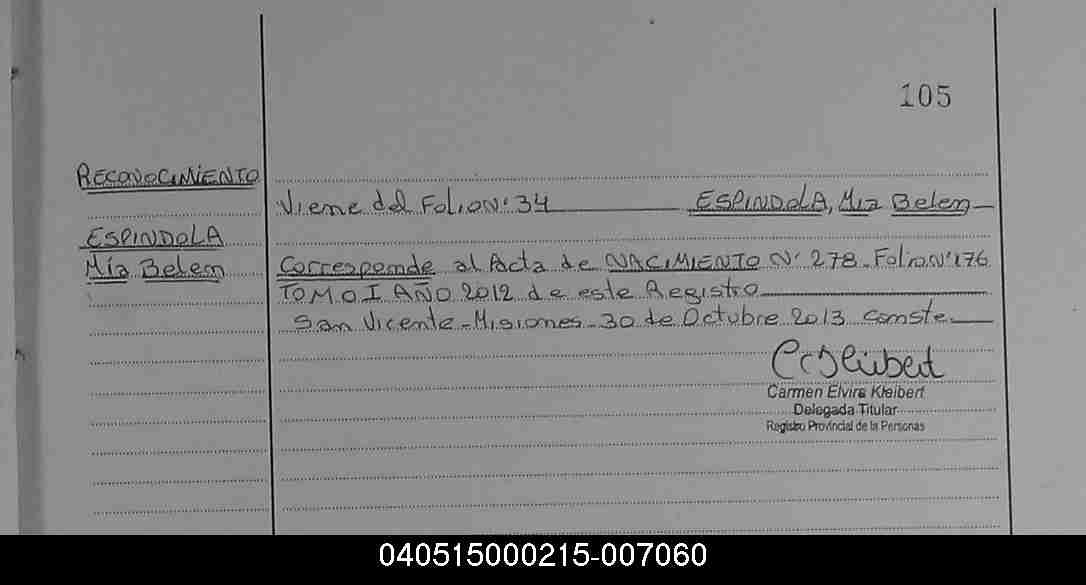 105
RECONOCIMIENTO
Viene del Folio Nº 34 ESPINDOLA, Mía Belem
ESPINDOLA
Mía Belem
Corresponde al Acta de NACIMIENTO Nº 278 - Folio Nº 176
TOMO I AÑO 2012 de este Registro
San Vicente - Misiones - 30 de Octubre 2013 conste.
Carmen Elvira Kleibert
Delegada Titular
Registro Provincial de la Personas
040515000215-007060